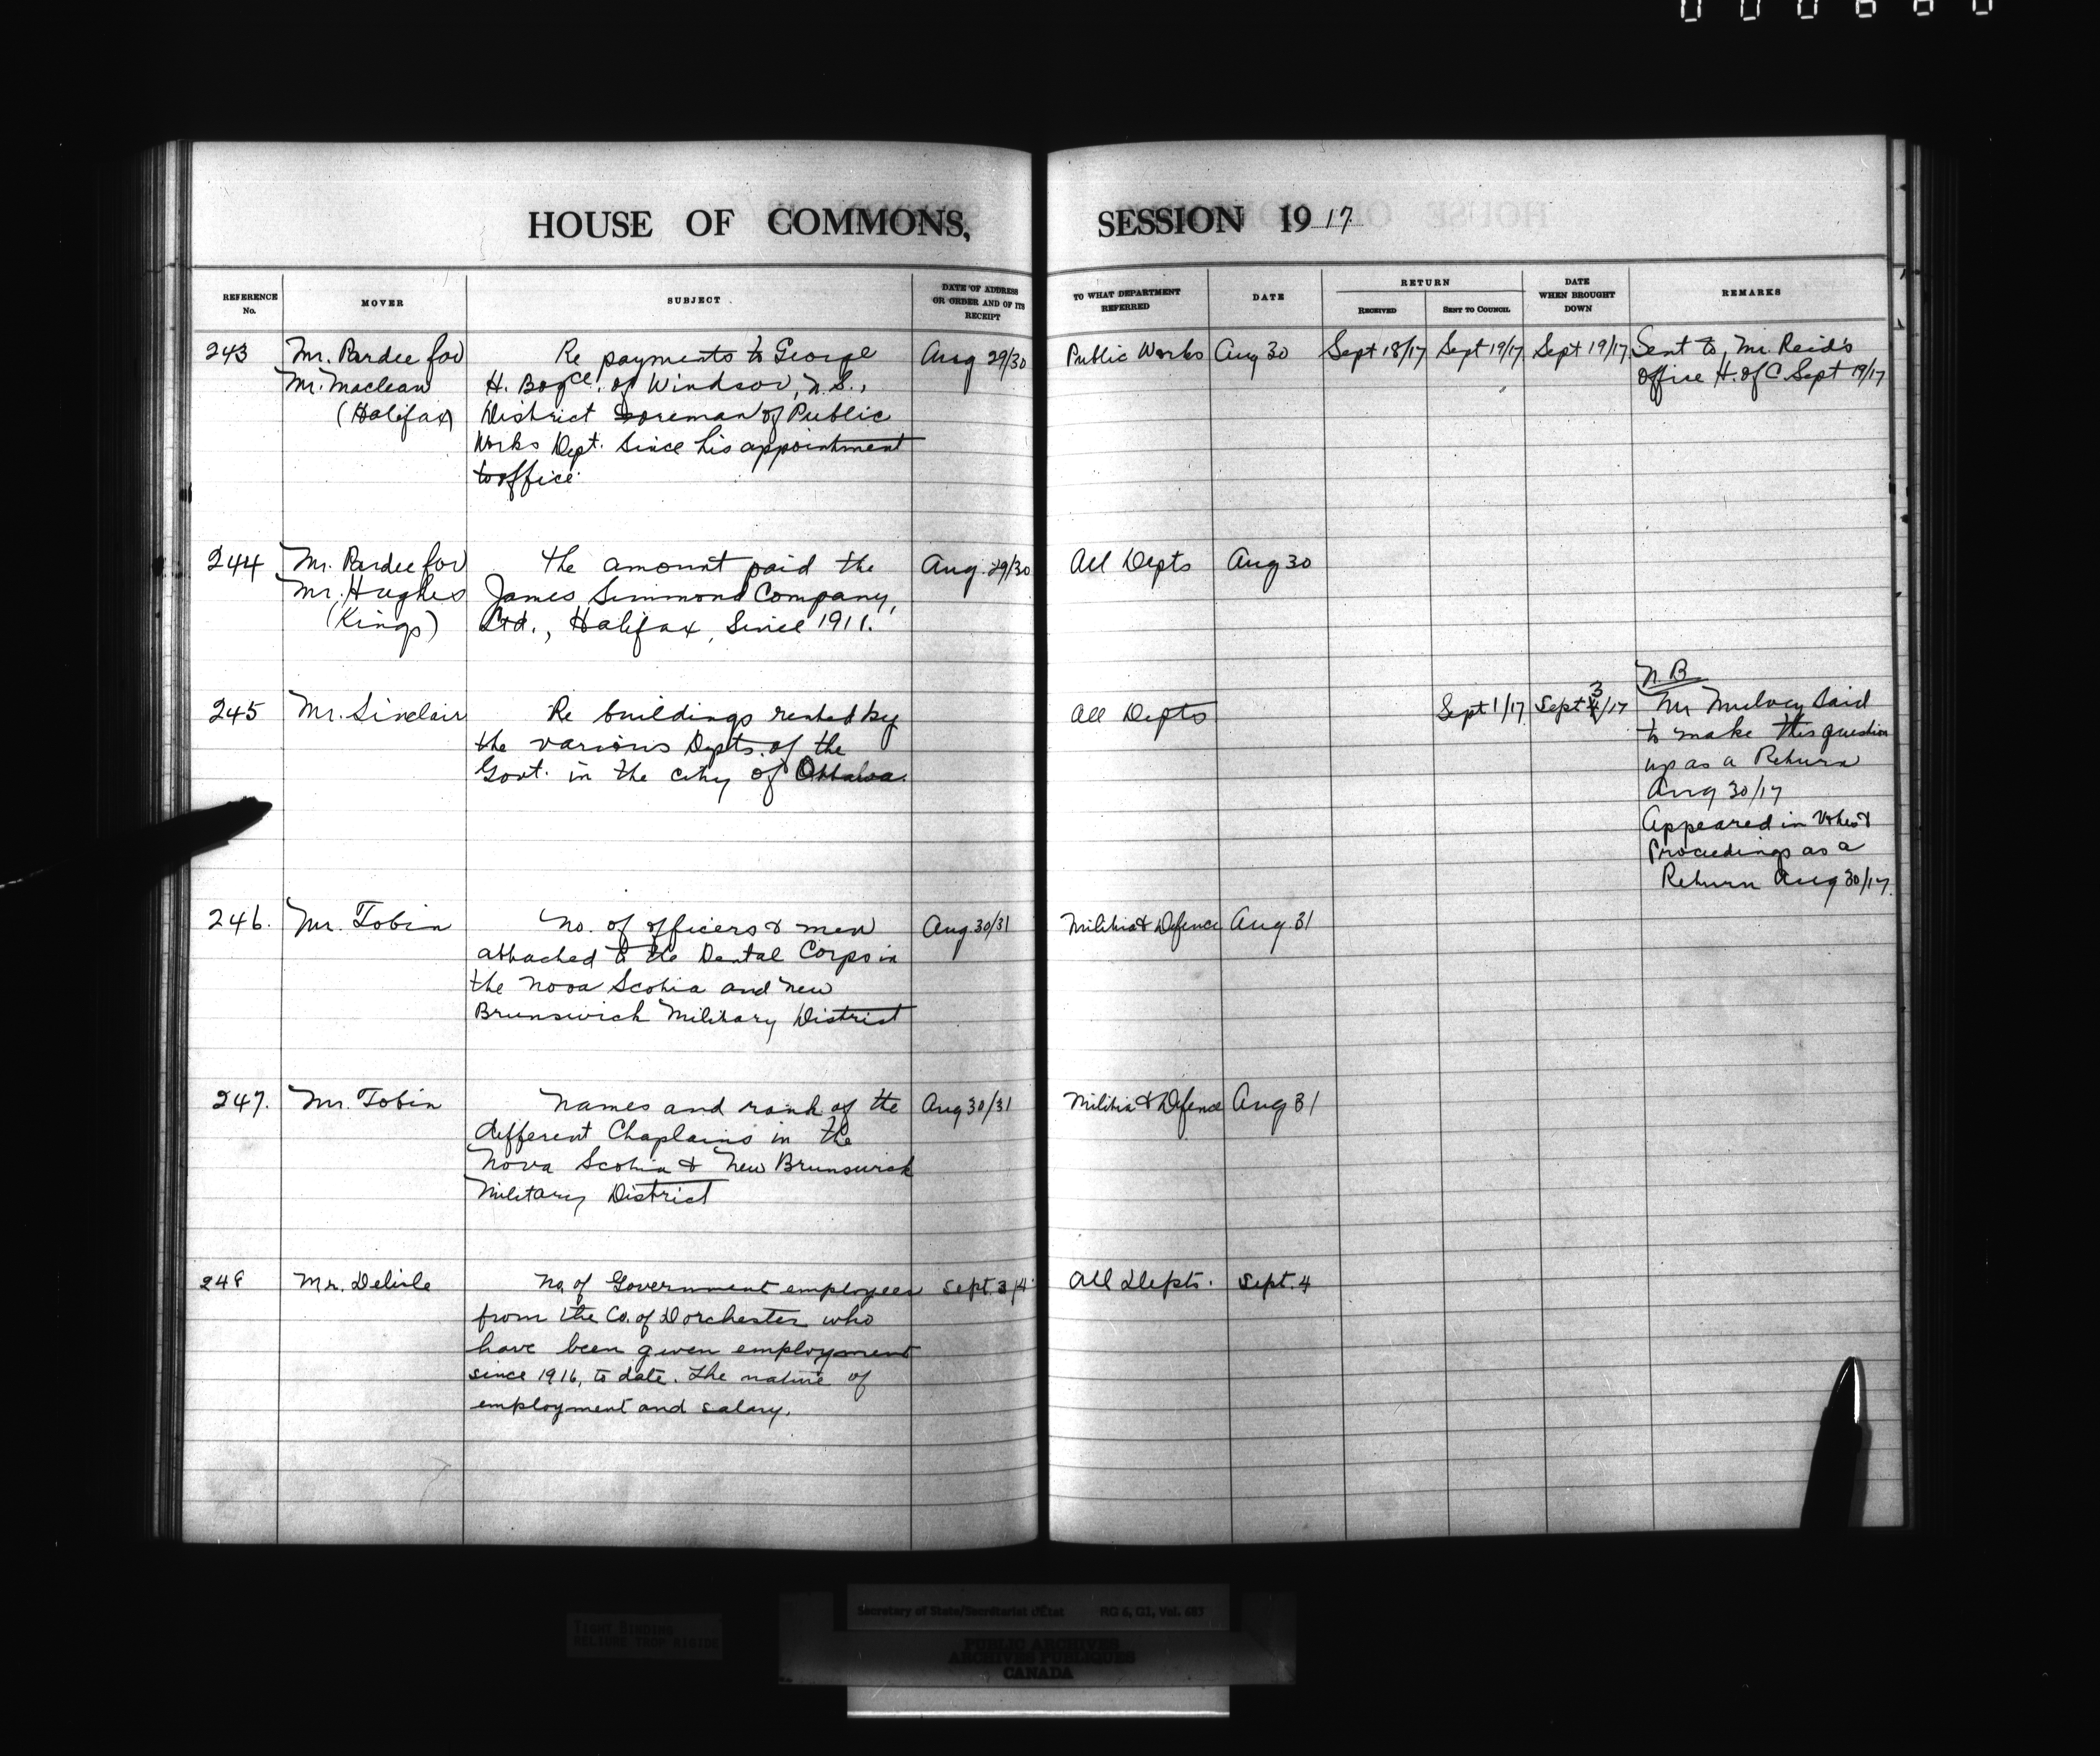 HOUSE OF COMMONS, SESSION 1917
REFERENCE No. MOVER SUBJECT DATE OF ADDRESS OR ORDER AND OF ITS RECEIPT TO WHAT DEPARTMENT REFERRED DATE RETURN RECEIVED SENT TO COUNCIL DATE WHEN BROUGHT DOWN REMARKS
243 Mr. Pardee for Re payments to George Aug 29/30 Public Works Aug 30 Sept 18/17 Sept 19/17 Sept 19/17 Sent to Mr. Reid's
Mr. Maclean H. of Windsor, N.S., office H. of C. Sept 19/17
(Halifax) District Foreman of Public
Works Dept. since his appointment
to office
244 Mr. Pardee for the amount paid the Aug. 29/30 All Depts Aug 30
Mr. Hughes James Simmond Company,
(Kings) Ltd., Halifax, since 1911.
N.B.
245 Mr. Sinclair Re buildings rented by All Depts Sept 1/17 Sept 3/17 Mr Mulvey said
the various Depts. of the to make this question
Govt. in the city of Ottawa. up as a Return
Aug 30/17
Appeared in Votes &
Proceedings as a
Return Aug 30/17.
246. Mr. Tobin No. of officers & men Aug 30/31 Militia & Defence Aug 31
attached to the Dental Corps in
the Nova Scotia and New
Brunswick Military District
247. Mr. Tobin Names and rank of the Aug 30/31 Militia & Defence Aug 31
different Chaplains in the
Nova Scotia & New Brunswick
Military District
248 Mr. Delisle No. of Government employees Sept. 3/4 All Depts. Sept. 4
from the Co. of Dorchester who
have been given employment
since 1916, to date. The nature of
employment and salary.
Secretary of State/Secrétariat d'État RG 6, G1, Vol. 683
TIGHT BINDING
RELIURE TROP RIGIDE
PUBLIC ARCHIVES
ARCHIVES PUBLIQUES
CANADA